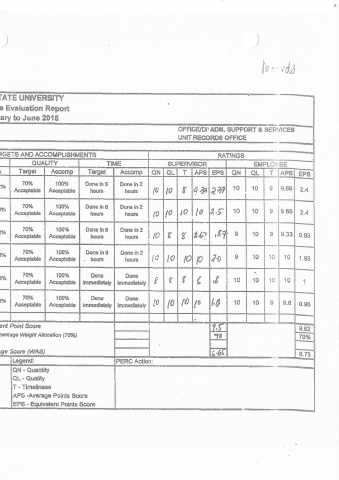 Records
TATE UNIVERSITY
e Evaluation Report
ary to June 2015
OFFICE/DP ADM. SUPPORT & SERVICES
UNIT RECORDS OFFICE
RGETS AND ACCOMPLISHMENTS RATINGS
QUALITY TIME SUPERVISOR EMPLOYEE
Target Accomp Target Accomp QN QL T APS EPS QN QL T APS EPS
% 70% Acceptable 100% Acceptable Done in 5 hours Done in 2 hours 10 10 8 10 10 9 9.66 2.4
% 70% Acceptable 100% Acceptable Done in 6 hours Done in 2 hours 10 10 10 10 2.5 10 10 9 9.66 2.4
% 70% Acceptable 100% Acceptable Done in 6 hours Done in 2 hours 10 8 8 8.67 .87 9 10 9 9.33 0.93
% 70% Acceptable 100% Acceptable Done in 6 hours Done in 2 hours 10 10 10 10 2.0 9 10 10 10 1.93
% 70% Acceptable 100% Acceptable Done immediately Done immediately 8 8 8 .8 10 10 10 10 1
% 70% Acceptable 100% Acceptable Done immediately Done immediately 10 10 10 10 1.0 10 10 9 9.6 0.96
ent Point Score 9.5 9.62
rcentage Weight Allocation (70%) 70%
age Score (WAS) 6.65 6.73
Legend: PERC Action:
QN - Quantity
QL - Quality
T - Timeliness
APS -Average Points Score
EPS - Equivalent Points Score